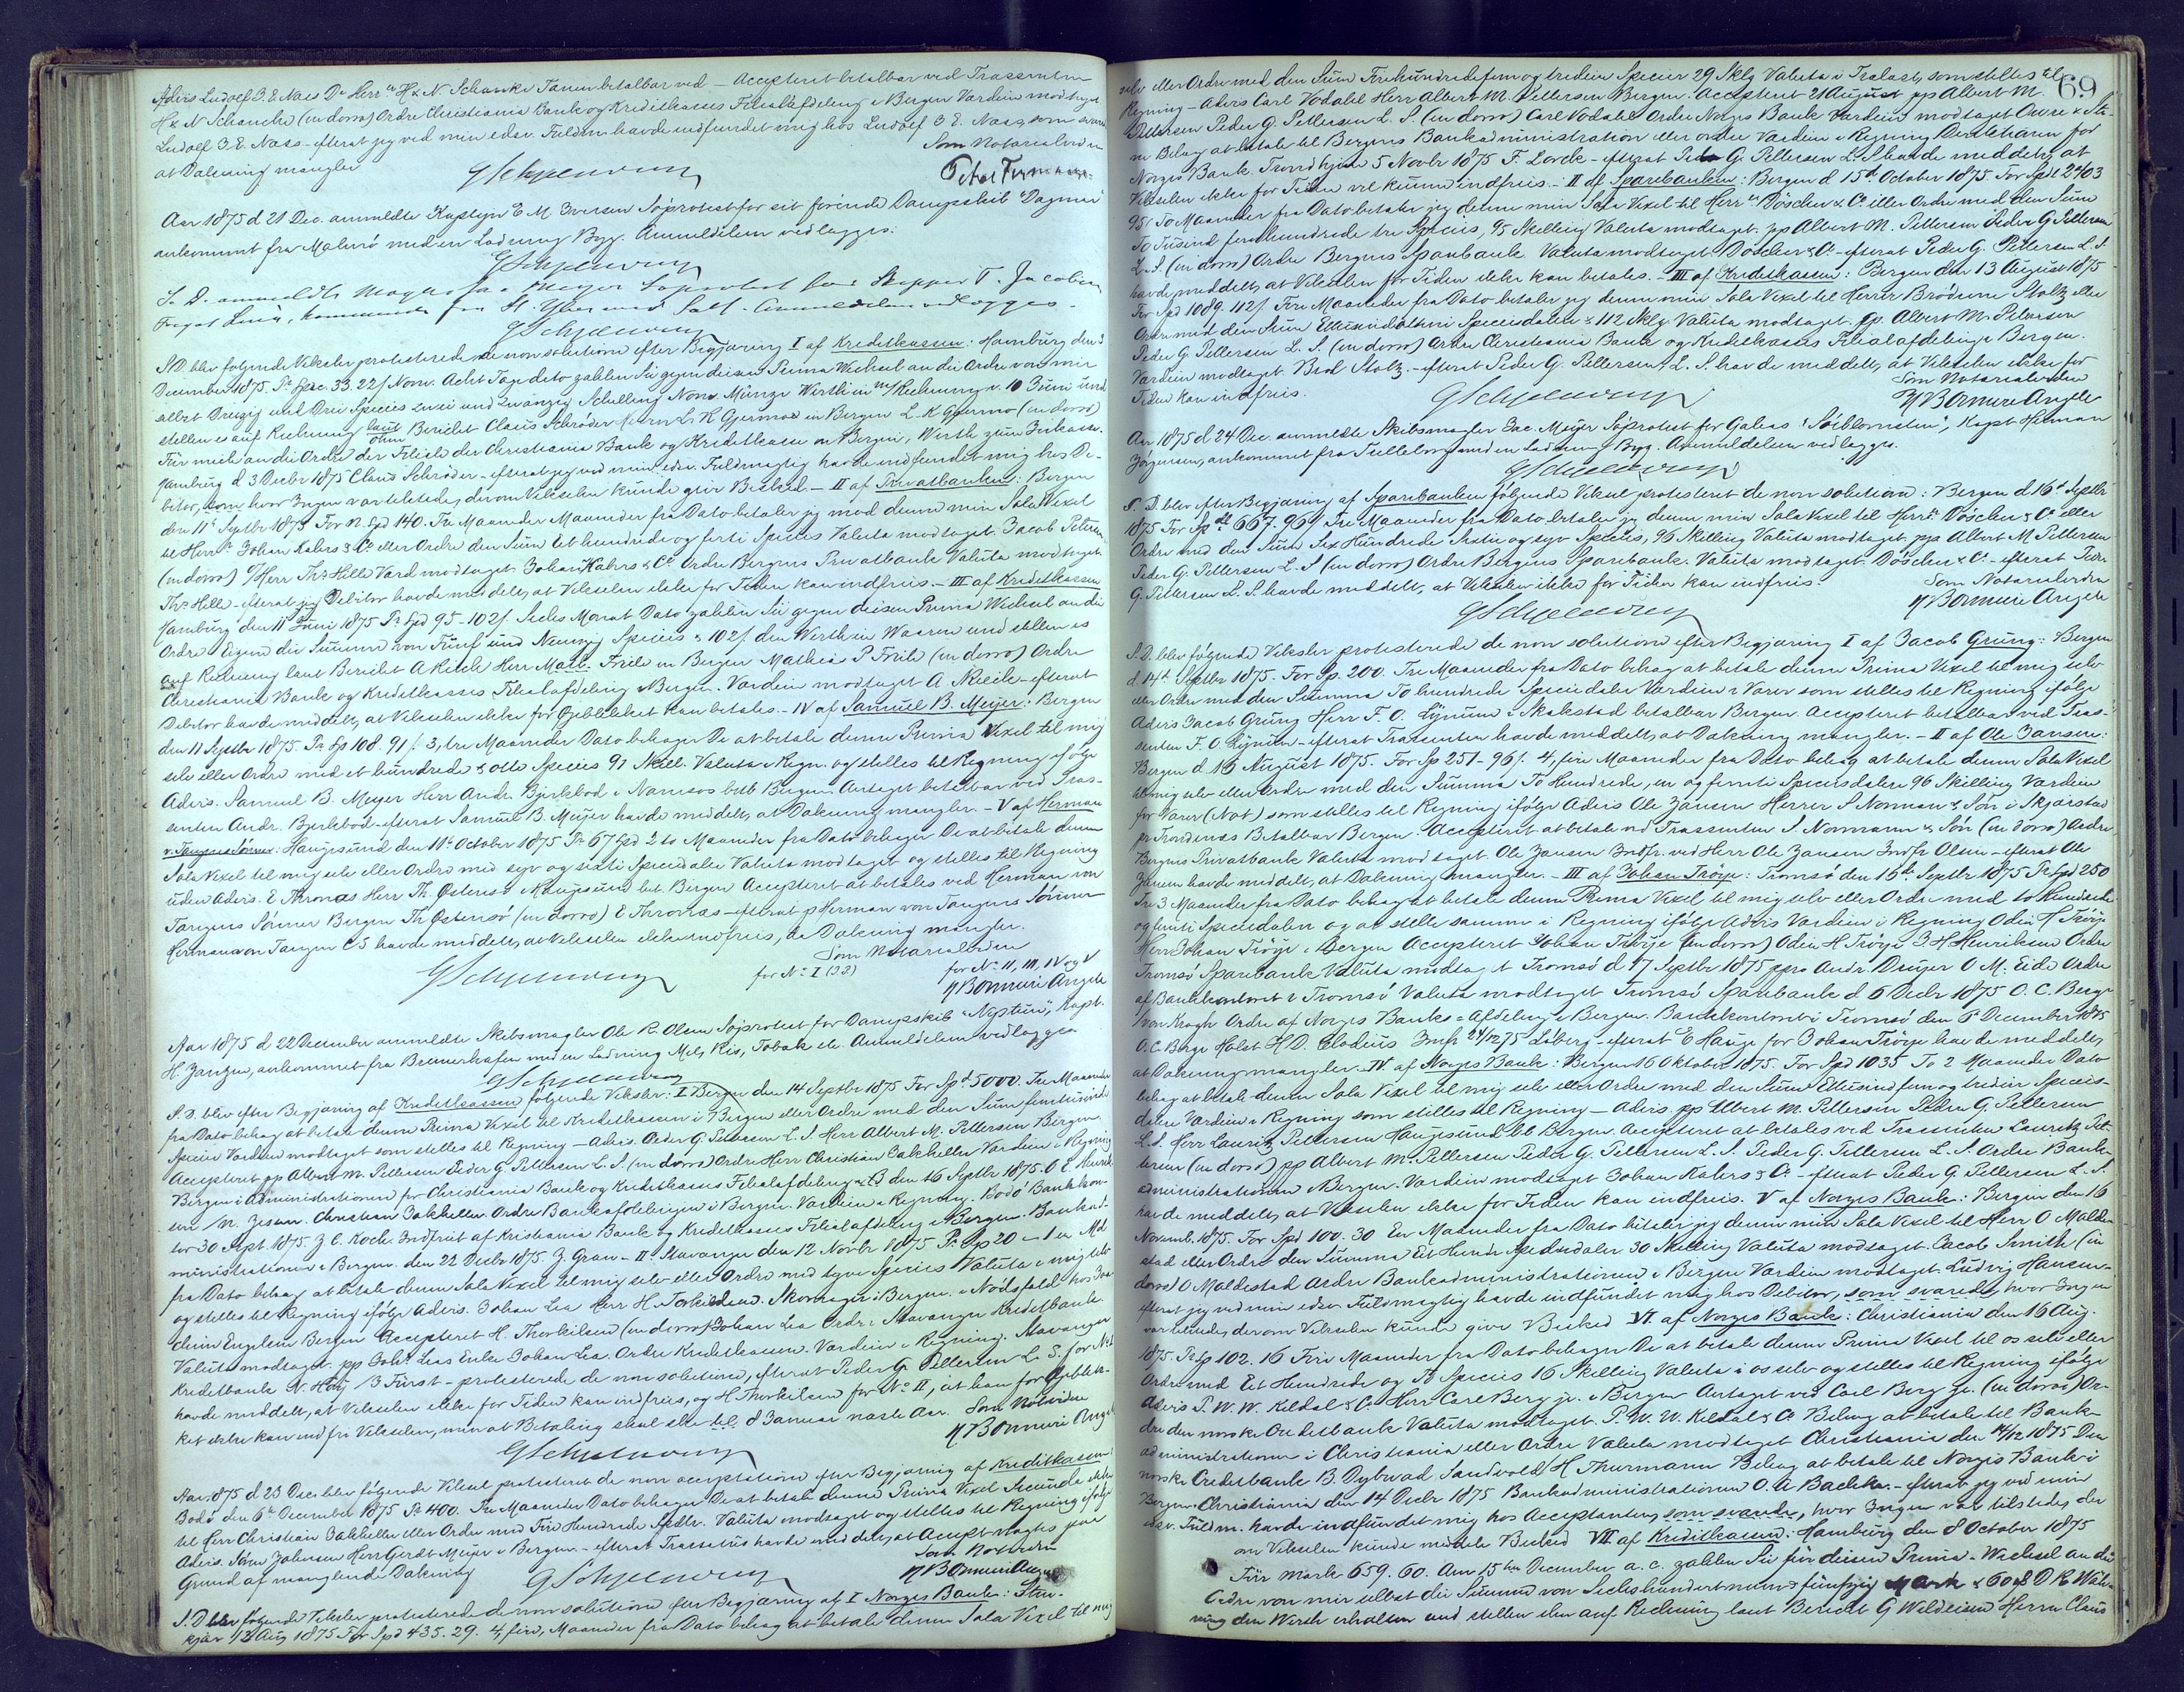 Advis Ludolf J. E. Naes Dr Herr H & N Schanke Tanen betalbar ved – Accepteret betalbar ved Trassenten
H & N Schanche (in dorso) Ordre Christiania Bank og Kreditkasses Filialafdeling i Bergen Værdien modtaget
Ludolf J. E. Naes – efterat jeg ved min edsv. Fuldm. havde indfundet mig hos Ludolf J. E. Naes, som svarede
at Dækning mangler
Som Notarialvidne
Aar 1875 d 21 Dec. anmeldte Kaptejn E M Iversen Søprotest for sit førende Dampskib "Dagmar"
ankommet fra Malmø med en Ladning Byg. Anmeldelsen vedlægges.
S. D. anmeldte Skipper T. Jacobsen
Anmeldelsen vedlægges.
S D. blev følgende Veksler protesterede de non solutione efter Begjæring I af Kreditkassen: Hamburg den 3
December 1875. Pr Spec. 33. 22/ Norw. Acht Tage dato zahlen Sie gegen diesen Prima Wechsel an die Ordre von mir
selbst Dreizig und Drei Species zwei und zwanzig Schilling Norw. Münze Werth in m/ Rechnung v. 10 Juni und
stellen es auf Rechnung laut ohne Bericht Claus Schröder Herrn L. K. Gjermoe in Bergen L. K Gjermo (in dorso)
Für mich an die Ordre der Filiale der Christiania Bank og Kreditkasse in Bergen, Werth zum Inkasso.
Hamburg d 3 Decbr 1875 Claus Schröder – efterat jeg ved min edsv. Fuldmægtig havde indfundet mig hos De-
bitor, som hvor Ingen var tilstede, der om Vekselen kunde give Besked – II af Privatbanken: Bergen
den 11te Septbr 1875 For N. Spd 140. Tre Maaneder Maaneder fra Dato betaler jeg mod denne min Sola Vexel
til Herr Johan Kahrs & Co eller Ordre den Sum Et hundrede og forti Species Valuta modtaget. Jacob Petersen
(in dorso) T/ Herr Ths Hille Værd modtaget. Johan Kahrs & Co Ordre Bergens Privatbank Valuta modtaget
Ths Hille – efterat jeg Debitor havde meddelt, at Vekselen ikke for Tiden kan indfries. – III af Kreditkassen
Hamburg den 11 Juni 1875 Pr Spd 95 - 102/. Sechs Monat Dato zahlen Sie gegen diesen Prima Wechsel an die
Ordre Eigene die Summe von Fünf und Neunzig Species & 102/. den Werth in Waaren und stellen es
auf Rechnung laut Bericht A Reiche Herr Math. Friele in Bergen Mathias P Friele (in dorso) Ordre
Christiania Bank og Kreditkasses Filialafdeling i Bergen. Værdien modtaget A. Reiche – efterat
Debitor havde meddelt, at Vekselen ikke for Øieblikket kan betales. – IV af Samuel B. Meyer: Bergen
den 11 Septbr 1875. Pr Sp 108. 91/. 3, tre Maaneder Dato behager De at betale denne Prima Vexel til mig
selv eller Ordre med et hundrede & otte Species 91 Skill. Valuta i Regn. og stilles til Regning ifølge
Advis. Samuel B. Meyer Herr Andr. Bjerkbod i Namsos betb Bergen Antaget betalbar ved Tras-
senten Andr. Bjerkbod – efterat Samuel B. Meyer havde meddelt, at Dækning mangler. – V af Herman
v. Tangens Sønner: Haugesund den 11te October 1875 Pr 67 Spd 2 to Maaneder fra Dato behager De at betale denne
Sola Vexel til mig selv eller Ordre med syv og sixti Speciedaler Valuta modtaget og stilles til Regning
uden Advis. E Thronæs Herr Th. Østensø i Haugesund bet. Bergen Accepteret at betales ved Herman von
Tangens Sønner Bergen Th Østensø (in dorso) E Thronæs – efterat p Herman von Tangens Sønner
Herman von Tangen C S havde meddelt, at Vekselen ikke indfries, da Dækning mangler.
Som Notarialvidne
for No I (33) for No II, III, IV og V
Aar 1875 d 22 December anmeldte Skibsmægler Ole R. Olsen Søprotest for Dampskib "Neptun", Kapt.
H. Janzen, ankommet fra Bremerhafen med en Ladning Mel, Ris, Tobak etc. Anmeldelsen vedlægges
S. D. blev efter Begjæring af Kreditkassen følgende Veksler: I Bergen den 14 Septbr 1875 For Spd 5000. Tre Maaneder
fra Dato behag at betale denne Prima Vexel til Kreditkassen i Bergen eller Ordre med den Sum femtusinde
Specier Værdien modtaget som stilles til Regning – Advis. Peder G. Pettersen L. S. Herr Albert M. Pettersen Bergen
Accepteret pp Albert M. Pettersen Peder G. Pettersen L. S. (in dorso) Ordre Herr Christian Jakhellen Værdien i Regning
Bergens Administrationen for Christiania Bank og Kreditkasses Filialafdeling i B den 16 Septbr 1875.
Christian Jakhellen. Ordre Bankafdelingen i Bergen. Værdien i Regning. Bodø Bankkon-
tor 30 Sept 1875. J C. Koch. Indfriet af Kristiania Bank og Kreditkasses Filialafdeling i Bergen. Bankad-
ministrationen i Bergen den 22 Decbr 1875. J Gran – II. Stavanger den 12 Novbr 1875 Pr Sp 20 – 1 en Md
fra Dato behag at betale denne Sola Vexel til mig selv eller Ordre med tyve Species Valuta i mig selv
og stilles til Regning ifølge Advis. Johan Lea Herr H. Torkildsen. Skomager i Bergen. i Nødsfald hos
Engelsen Bergen Accepteret H. Thorkilsen (in dorso) Johan Lea Ordre Stavanger Kreditbank.
Valuta modtaget. pp Johs Leas Enke Johan Lea. Ordre Kreditkassen. Værdien i Regning. Stavanger
Kreditbank N. Høy B Fürst – protesterede de non solutione, efterat Peder G. Pettersen L. S. for No I
havde meddelt, at Vekselen ikke for Tiden kan indfries, og H Thorkilsen for No II, at han for Øieblik-
ket ikke kan indfri Vekselen, men at Betaling skal ske til 8 Januar næste Aar. Som Notvidne
Aar 1875 d 23 Dec. blev følgende Veksel protesteret de non acceptatione efter Begjæring af Kreditkassen
Bodø den 6te December 1875 Pr 400. Tre Maaneder Dato behager De at betale denne Prima Vexel Secunda ikke
til Herr Christian Jakhellen eller Ordre med Fire Hundrede Spdlr. Valuta modtaget og stilles til Regning ifølge
Advis. Søren Johnsen Herr Gerdt Meyer i Bergen. – efterat Trassatus havde meddelt, at Accept nægtes paa
Grund af manglende Dækning
Som Notvidne
S. D. blev følgende Veksler protesterede de non solutione efter Begjæring af I Norges Bank: Stan-
kjær 13 Aug 1875 For Spd 435. 29. 4, fire, Maaneder fra Dato behag at betale denne Sola Vexel til mig
69
selv eller Ordre med den Sum Firehundredefem og tredive Specier 29 Sklg Valuta i Trælast, som stilles til
Regning – Advis Carl Vodahl Herr Albert M. Pettersen Bergen. Accepteret 21 August pp Albert M.
Pettersen Peder G. Pettersen L. S. (in dorso) Carl Vodahl Ordre Norges Bank Værdien modtaget
Behag at betale til Bergens Bankadministration eller ordre Værdien i Regning Direktionen for
Norges Bank. Trondhjem 5 Novbr 1875 F. Lorck – efterat Peder G. Pettersen L. S. havde meddelt, at
Vekselen ikke for Tiden vil kunne indfries. – II af Sparebanken: Bergen d 15de October 1875. For Spd 2403
95/ To Maaneder fra Dato betaler jeg denne min Sola Vexel til Herr Döscher & Co eller Ordre med den Sum
To Tusind firehundrede tre Species, 95 Skilling Valuta modtaget. pp Albert M. Pettersen Peder G Pettersen
L. S. (in dorso) Ordre Bergens Sparebank Valuta modtaget. Döscher & Co – efterat Peder G. Pettersen L. S.
havde meddelt, at Vekselen for Tiden ikke kan betales. – III af Kreditkassen: Bergen den 13 August 1875
For Spd 1089. 112/. Fire Maaneder fra Dato betaler jeg denne min Sola Vexel til Herrer Brødrene Stoltz eller
Ordre med den Sum Ettusindeotteni Speciedaler & 112 Sklg. Valuta modtaget. pp. Albert M. Petersen
Peder G. Pettersen L. S. (in dorso) Ordre Christiania Bank og Kreditkasses Filialafdeling i Bergen.
Værdien modtaget. Brød Stoltz. – efterat Peder G. Pettersen, L. S. havde meddelt, at Vekselen ikke for
Tiden kan indfries.
Som Notarialvidne
Aar 1875 d 24 Dec. anmeldte Skibsmægler Jac. Meyer Søprotest for Galeas "Søiblomsten", Kapt Herman
Jørgensen, ankommet fra Trelleborg med en Ladning Byg. Anmeldelsen vedlægges.
S. D. blev efter Begjæring af Sparebanken følgende Veksel protesteret de non solutione: Bergen d. 16de Septbr
1875 For Sp 667. 96/. Tre Maaneder fra Dato betaler jeg denne min Sola Vexel til Herrer Döscher & Co eller
Ordre med den Sum Sex Hundrede Sextio og syv Species, 96 Skilling Valuta modtaget. ppa Albert M. Pettersen
Peder G. Pettersen L. S. (in dorso) Ordre Bergens Sparebank. Valuta modtaget. Döscher & Co – efterat Peder
G. Pettersen L. S. havde meddelt, at Vekselen ikke for Tiden kan indfries.
Som Notarialvidne
S. D. blev følgende Veksler protesterede de non solutione efter Begjæring I af Jacob Grung: Bergen
d. 14de Septbr 1875. For Sp. 200. Tre Maaneder fra Dato behag at betale denne Prima Vexel til mig selv
eller Ordre med den Summa To hundrede Speciedaler Værdien i Varer som stilles til Regning ifølge
Advis Jacob Grung Herr F. O. Lynum i Makestad betalbar Bergen. Accepteret betalbar ved Tras-
senten F. O. Lynum – efterat Trassenten havde meddelt, at Dækning mangler. – II af Ole Jansen:
Bergen d. 16 August 1875. For Sp 251 - 96/. 4, fire Maaneder fra Dato behag at betale denne Sola Vexel
til mig selv eller Ordre med den Summa To Hundrede, en og femti Speciesdalere 96 Skilling Værdien
for Varer (Not) som stilles til Regning ifølge Advis Ole Jansen Herrer S Norman & Søn i Skjærstad
pr Trondenæs Betalbar Bergen. Accepteret at betale ved Trassenten S. Normann & Søn (in dorso) Ordre
Bergens Privatbank Valuta modtaget. Ole Jansen Indfr. ved Herr Ole Jansen Indfr Olsen – efterat Ole
Jansen havde meddelt, at Dækning mangler. – III af Johan Trøye: Tromsø den 16de Septbr 1875 Pr Spd 250
Tre 3 Maaneder fra Dato behag at betale denne Prima Vexel til mig selv eller Ordre med to Hundrede
og femti Speciedaler og at stille samme i Regning ifølge Advis Værdien i Regning Odin H Trøye
Herr Johan Trøye i Bergen Accepteret Johan Trøye (in dorso) Odin H Trøye J H Henriksen Ordre
Tromsø Sparebank Valuta modtaget Tromsø d 17 Septbr 1875 ppra Andr. Dreyer O. M. Eide Ordre
af Bankkontoret i Tromsø Valuta modtaget Tromsø Sparebank d 6 Decbr 1875 O. C. Berge
von Krogh Ordre af Norges Banks Afdeling i Bergen. Bankkontoret i Tromsø den 6te December 1875
O. C. Berge Holst H D. Clodius Indfr 24/12 75 Løberg – efterat E Hauge for Johan Trøye havde meddelt,
at Dækning mangler. IV. af Norges Bank: Bergen 16 Oktober 1875. For Spd 1035 To 2 Maaneder Dato
behag at betale denne Sola Vexel til mig selv eller Ordre med den Sum Ettusind fem og tredive Species-
dalere Værdien i Regning som stilles til Regning – Advis. pp Albert M. Pettersen Peder G. Pettersen
L. S. Herr Lauritz Pettersen Haugesund btl Bergen. Accepteret at betales ved Trassenten Lauritz Pet-
tersen (in dorso) pp Albert M. Pettersen Peder G. Pettersen L. S. Peder G. Pettersen L. S. Ordre Bank-
administrationen i Bergen. Værdien modtaget Johan Kahrs & Co. – efterat Peder G. Pettersen L. S.
havde meddelt, at Vekselen ikke for Tiden kan indfries. V af Norges Bank: Bergen den 16
Novemb. 1875. For Spd 100. 30 En Maaneder fra Dato betaler jeg denne min Sola Vexel til Herr O Malde-
stad eller Ordre den Summa Et Hundr Speciesdaler 30 Skilling Valuta modtaget. Jacob Smith (in
dorso) O Maldestad Ordre Bankadministrationen i Bergen Værdien modtaget. Ludvig Hansen –
efterat jeg ved min edsv. Fuldmægtig havde indfundet mig hos Debitor, som svarede, hvor Ingen
var tilstede, der om Vekselen kunde give Besked VI. af Norges Bank: Christiania den 16 Aug.
1875. Pr Sp 102. 16 Fire Maaneder fra Dato behager De at betale denne Prima Vexel til os selv eller
Ordre med Et Hundrede og To Species 16 Skilling Valuta i os selv og stilles til Regning ifølge
Advis P. W. W. Kildal & Co Herr Carl Berg jr. i Bergen Antaget ved Carl Berg jr. (in dorso) Or-
dre den norske Creditbank Valuta modtaget. P. W. W. Kildal & Co Behag at betale til Bank-
administrationen i Christiania eller Ordre Valuta modtaget Christiania den 14/12 1875 Den
norske Creditbank B Dybwad Sandvold H Thurmann Behag at betale til Norges Bank i
Bergen. Christiania den 14 Decbr 1875 Bankadministrationen O. A Bachke. – efterat jeg ved min
edsv. Fuldm. havde indfundet mig hos Acceptanten, som svarede, hvor Ingen var tilstede, der
om Vekselen kunde meddele Besked VII af Kreditkassen: Hamburg den 8 October 1875
Für Mark 659. 60. Am 15ten December a. c. zahlen Sie für diesen Prima-Wechsel an die
Ordre von mir selbst die Summe von Sechshundertneun & fünfzig Mark & 60 D R Wäh-
rung den Werth erhalten und stellen ihn auf Rechnung laut Bericht G Weldeisen Herrn Claus